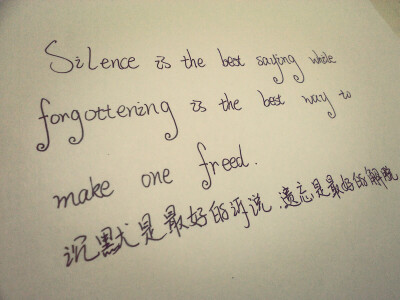 Silence is the best saying while
forgottening is the best way to
make one freed.
沉默是最好的诉说 遗忘是最好的解脱